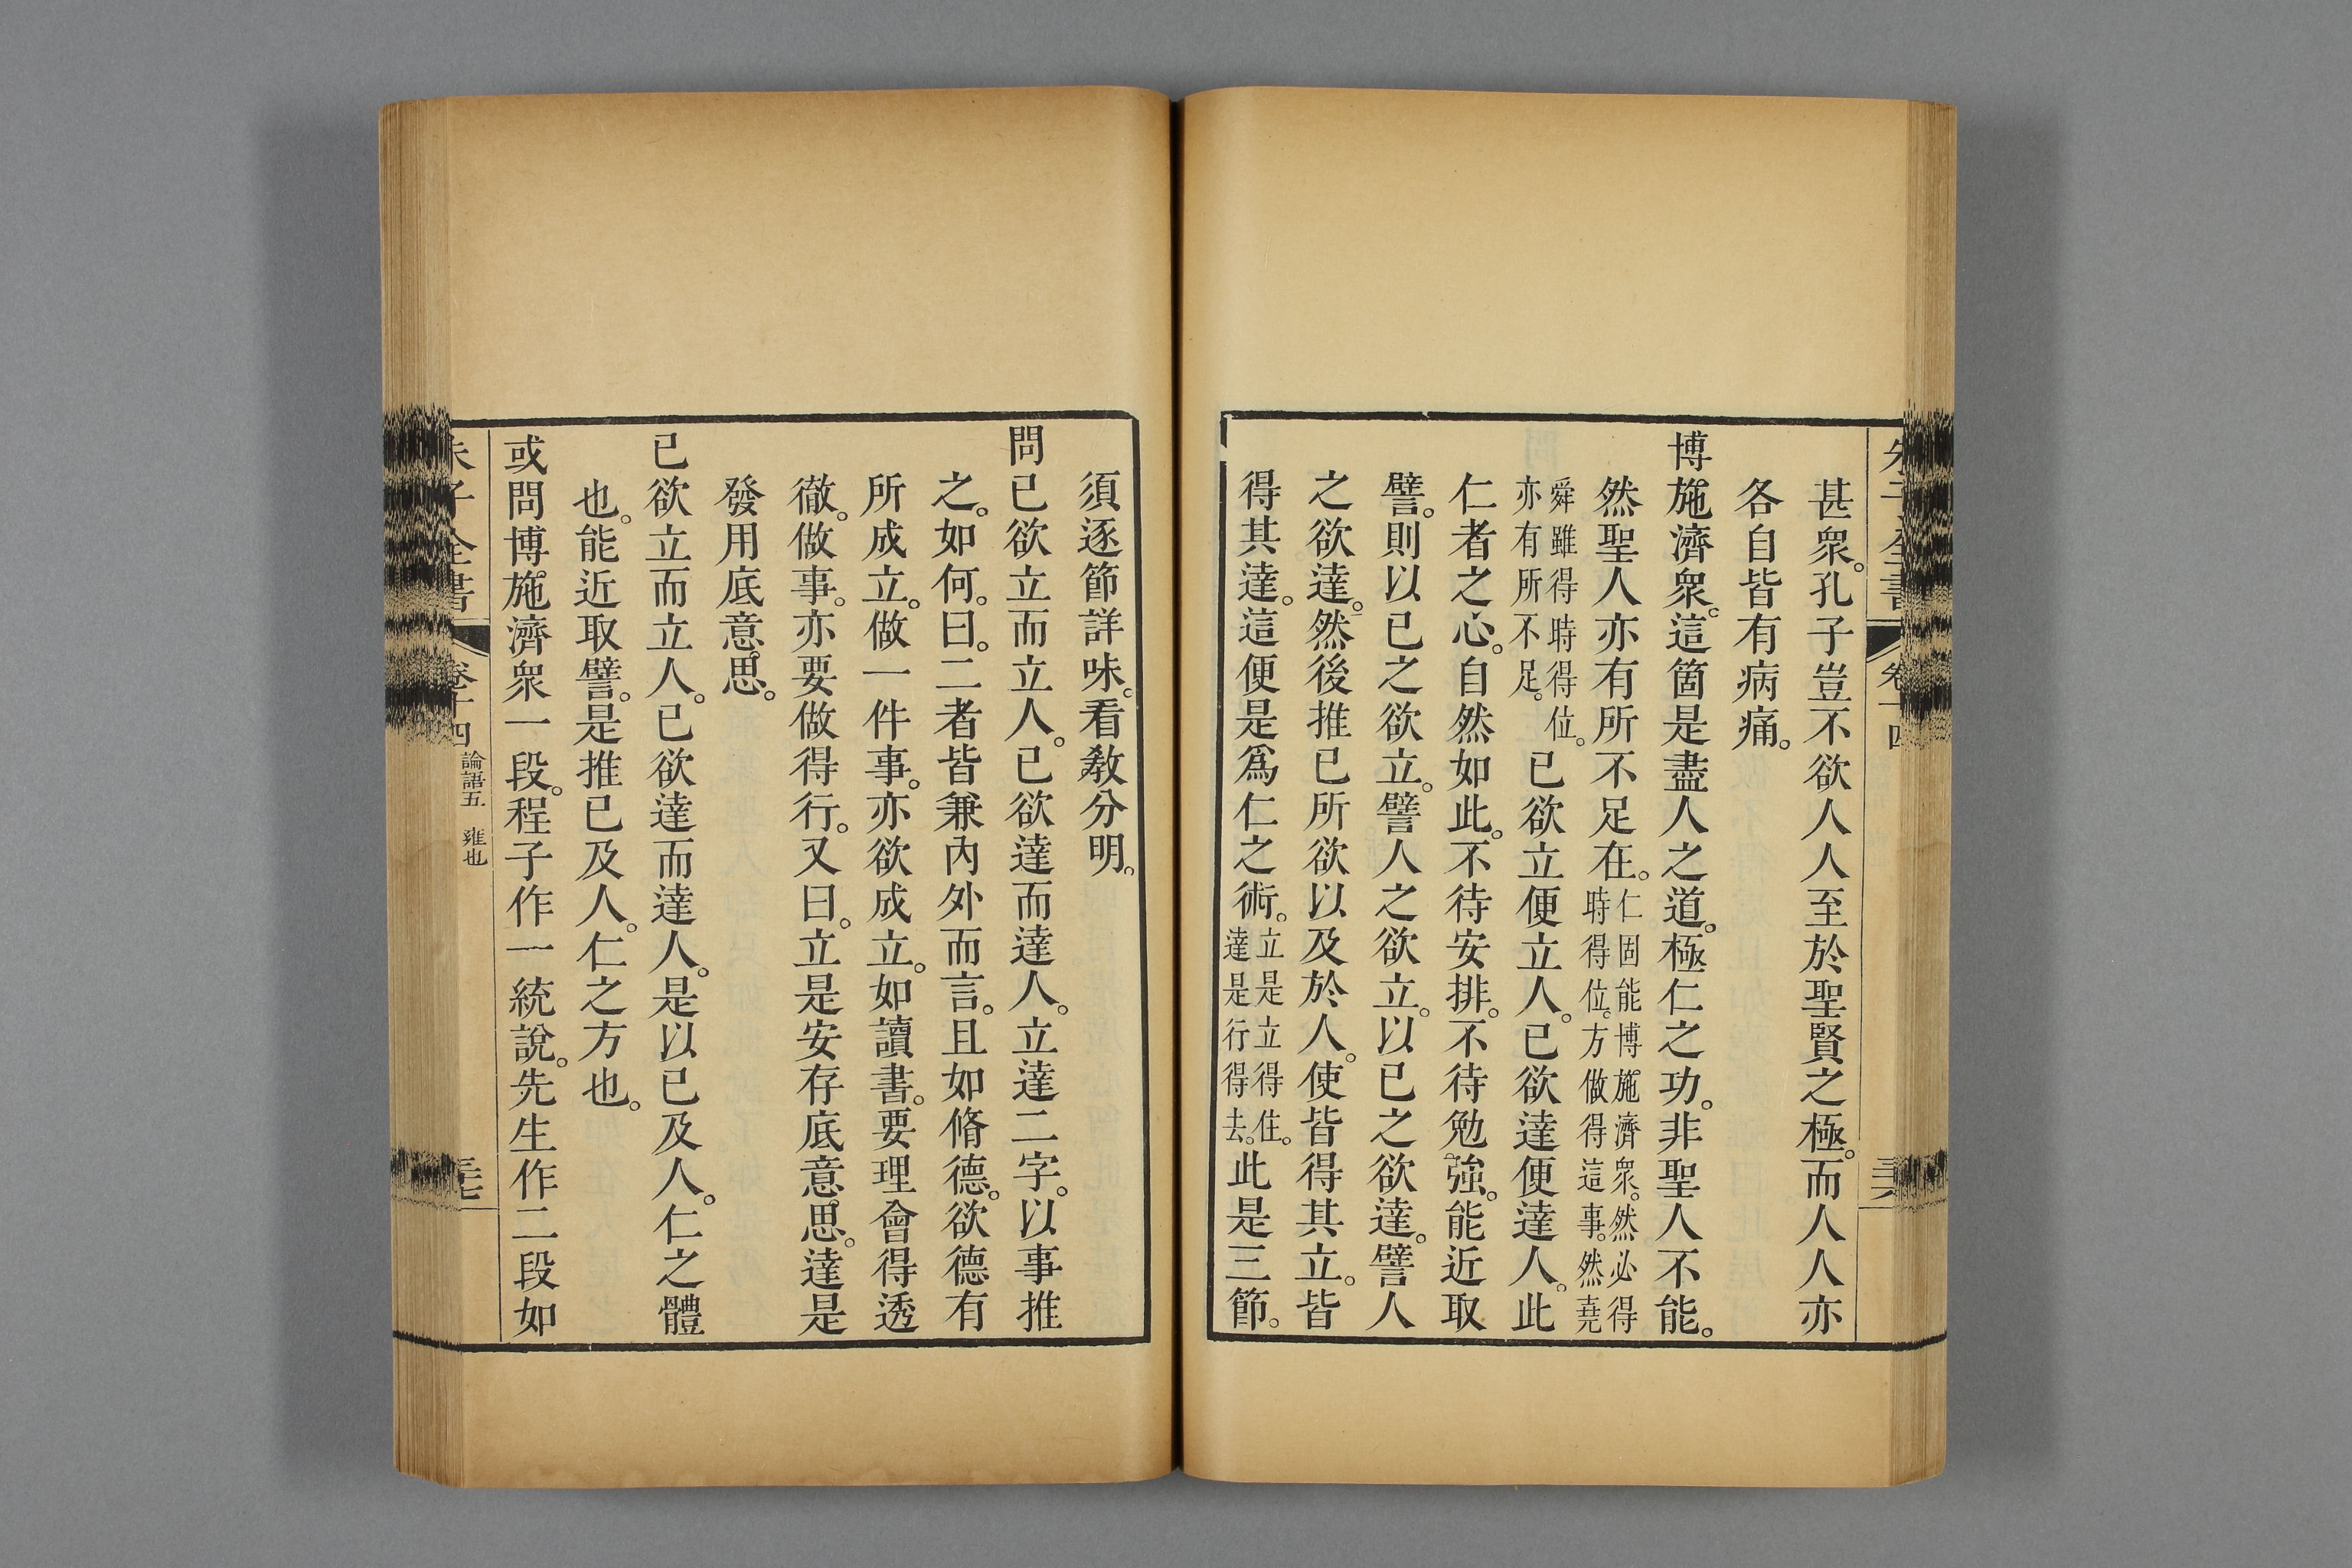 甚衆。孔子豈不欲人人至於聖賢之極。而人人亦
各自皆有病痛。
博施濟衆。這箇是盡人之道。極仁之功。非聖人不能。
然聖人亦有所不足在。仁固能博施濟衆。然必得
時得位。方做得這事。然堯
舜雖得時得位。
亦有所不足。
已欲立便立人。已欲達便達人。此
仁者之心。自然如此。不待安排。不待勉強。能近取
譬。則以已之欲立。譬人之欲立。以已之欲達。譬人
之欲達。然後推已所欲以及於人。使皆得其立。皆
得其達。這便是爲仁之術。立是立得住。
達是行得去。此是三節。
須逐節詳味。看敎分明。
問已欲立而立人。已欲達而達人。立達二字。以事推
之。如何。曰。二者皆兼內外而言。且如脩德。欲德有
所成立。做一件事。亦欲成立。如讀書。要理會得透
徹。做事。亦要做得行。又曰。立是安存底意思。達是
發用底意思。
已欲立而立人。已欲達而達人。是以已及人。仁之體
也。能近取譬。是推已及人。仁之方也。
或問博施濟衆一段。程子作一統說。先生作二段如
朱子全書
卷十四 論語五 雍也